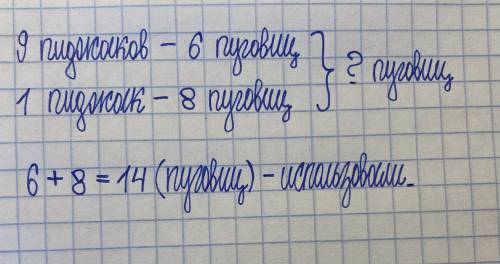 9 пиджаков – 6 пуговиц } ? пуговиц
1 пиджак – 8 пуговиц
6 + 8 = 14 (пуговиц) – использовали.